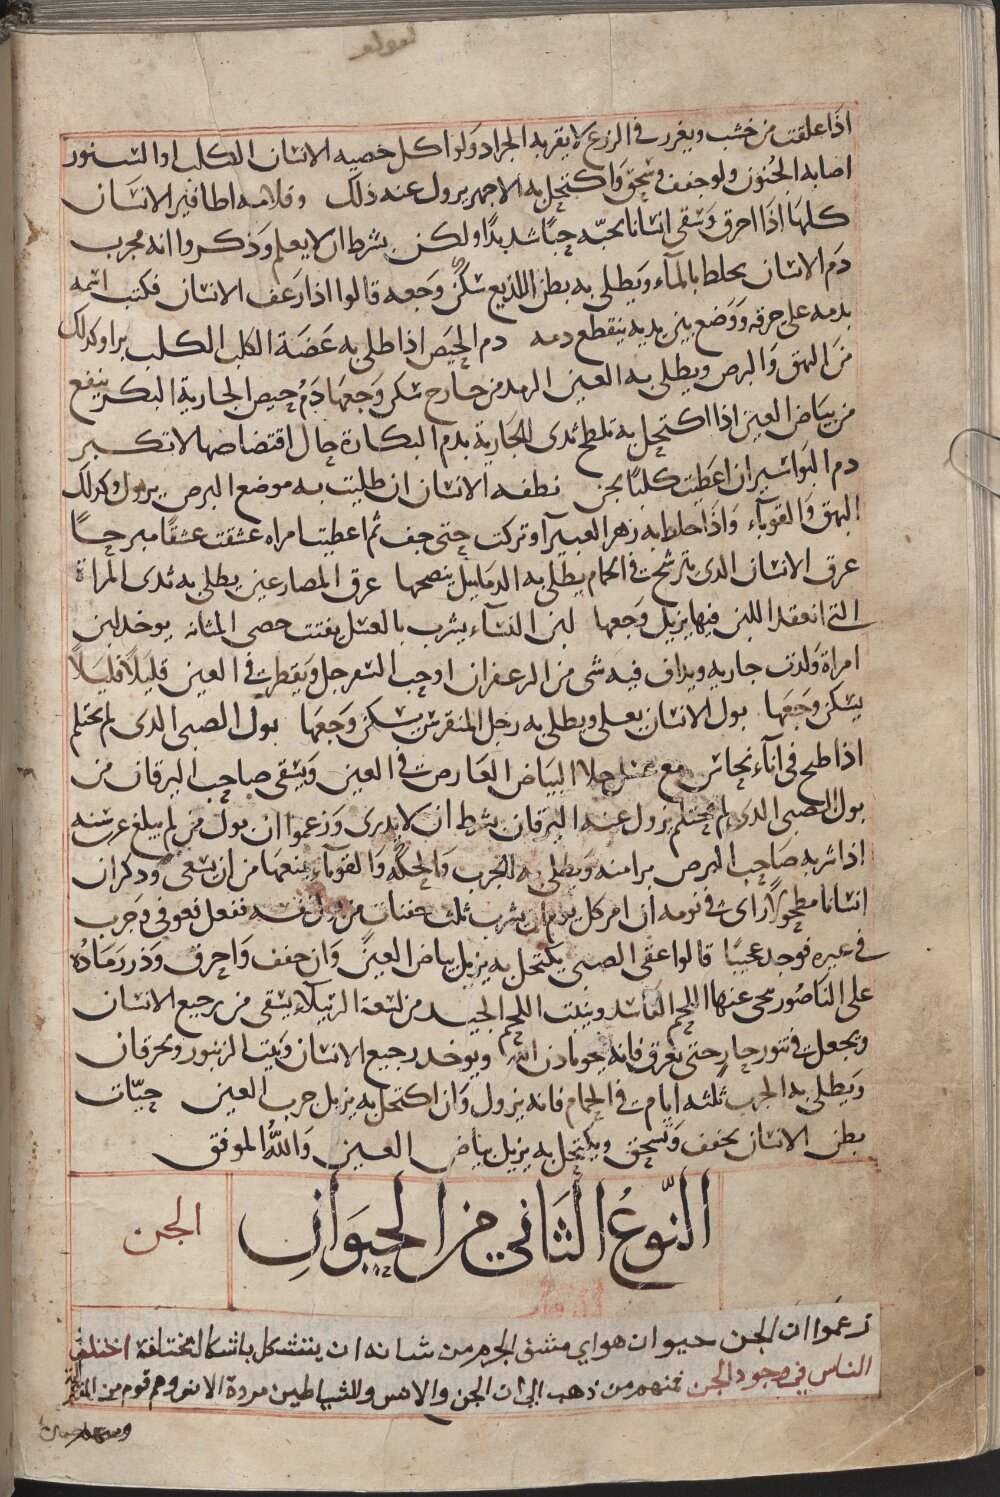 اذا علقت من خشب ويغرز في الزرع لا يقربه الجراد ولو اكل خصيه الانسان الكلب او السنور
اصابه الجنون ولو جفف وسحق واكتحل به الاجهر يزول عنه ذلك وقلامه اظافير الانسان
كلها اذا احرق وسقى انسانا يحبّه حبّا شديدا ولكن بشرط ان لا يعلم وذكروا انه مجرب
دم الانسان يخلط بالمآء ويطلى به بطن اللديغ سكن وجعه قالوا اذا رعف الانسان فكتب اسمه
بدمه على خرقه ووضع بين يديه ينقطع دمه دم الحيض اذا طلى به عضة الكلب الكلب يبرا وكذلك
من البهق والبرص ويطلى به العين الرمد من خارج سكن وجعها دم حيض الجارية البكر ينفع
من بياض العين اذا اكتحل به تلطخ ثدى الجارية بدم البكارة حال اقتضاضها لا تكبر
دم البواسير ان اعطيت كلبًا يجن نطفه الانسان ان طليت به موضع البرص يزول وكذلك
البهق والقوبآء واذا خلط به زهر العبيرا وتركت حتى جف ثم اعطيت امراه عشقت عشقا مبرحًا
عرق الانسان الذى يترشح في الحمام يطلى به الدماميل ينضجها عرق المصارعين يطلى به ثدى المراة
التي انعقد اللبن فيها يزيل وجعها لبن النسآء يشرب بالعسل يفتت حصى المثانه يوخذ لبن
امراة ولدت جاريه ويداف فيه شى من الزعفران او حب السفرجل ويقطر في العين قليلًا قليلًا
يسكن وجعها بول الانسان يغلى ويطلى به رجل المنقرس يسكن وجعها بول الصبى الذى لم يحتلم
اذا طبخ في انآء نحاس مع عسل جلا البياض العارض في العين ويسقى صاحب اليرقان من
بول الصبى الذى لم يحتلم يزول عنه اليرقان بشرط ان لا يدرى وزعموا ان بول من لم يبلغ عر سنه
اذا شربه صاحب البرص يبرا منه ويطلى به الجرب والحكّه والقوبآء يمنعها من ان يسعى وذكر ان
انسانا مطحولًا راى في نومه ان امر كل يوم ان يشرب ثلث حفنات من بول نفسه ففعل فعوفي وجرب
في غيره فوجد عجيبًا قالوا عقى الصبى يكتحل به يزيل بياض العين وان جفف واحرق وذر رماده
على الناصور محى عنها اللحم الفاسد وينبت اللحم الجيد من لسعة الرتيلاء يسقى من رجيع الانسان
ويجعل في تنور حار حتى يعرق فانه ينجو باذن الله ويوخذ رجيع الانسان وبيت الزنبور ويحرقان
ويطلى به الجرب ثلثه ايام في الحمام فانه يزول وان اكتحل به يزيل جرب العين حيّات
بطن الانسان يجفف ويسحق ويكتحل به يزيل بياض العين والله الموفق
النّوعُ الثاني من الحيوانِ الجن
زعموا ان الجن حيوان هواي مشف الجرم من شانه ان يتشكل باشكال مختلفة اختلف
الناس في وجود الجن فمنهم من ذهب الى ان الجن والانس والشياطين مردة الانس وهم قوم من المعتزلة